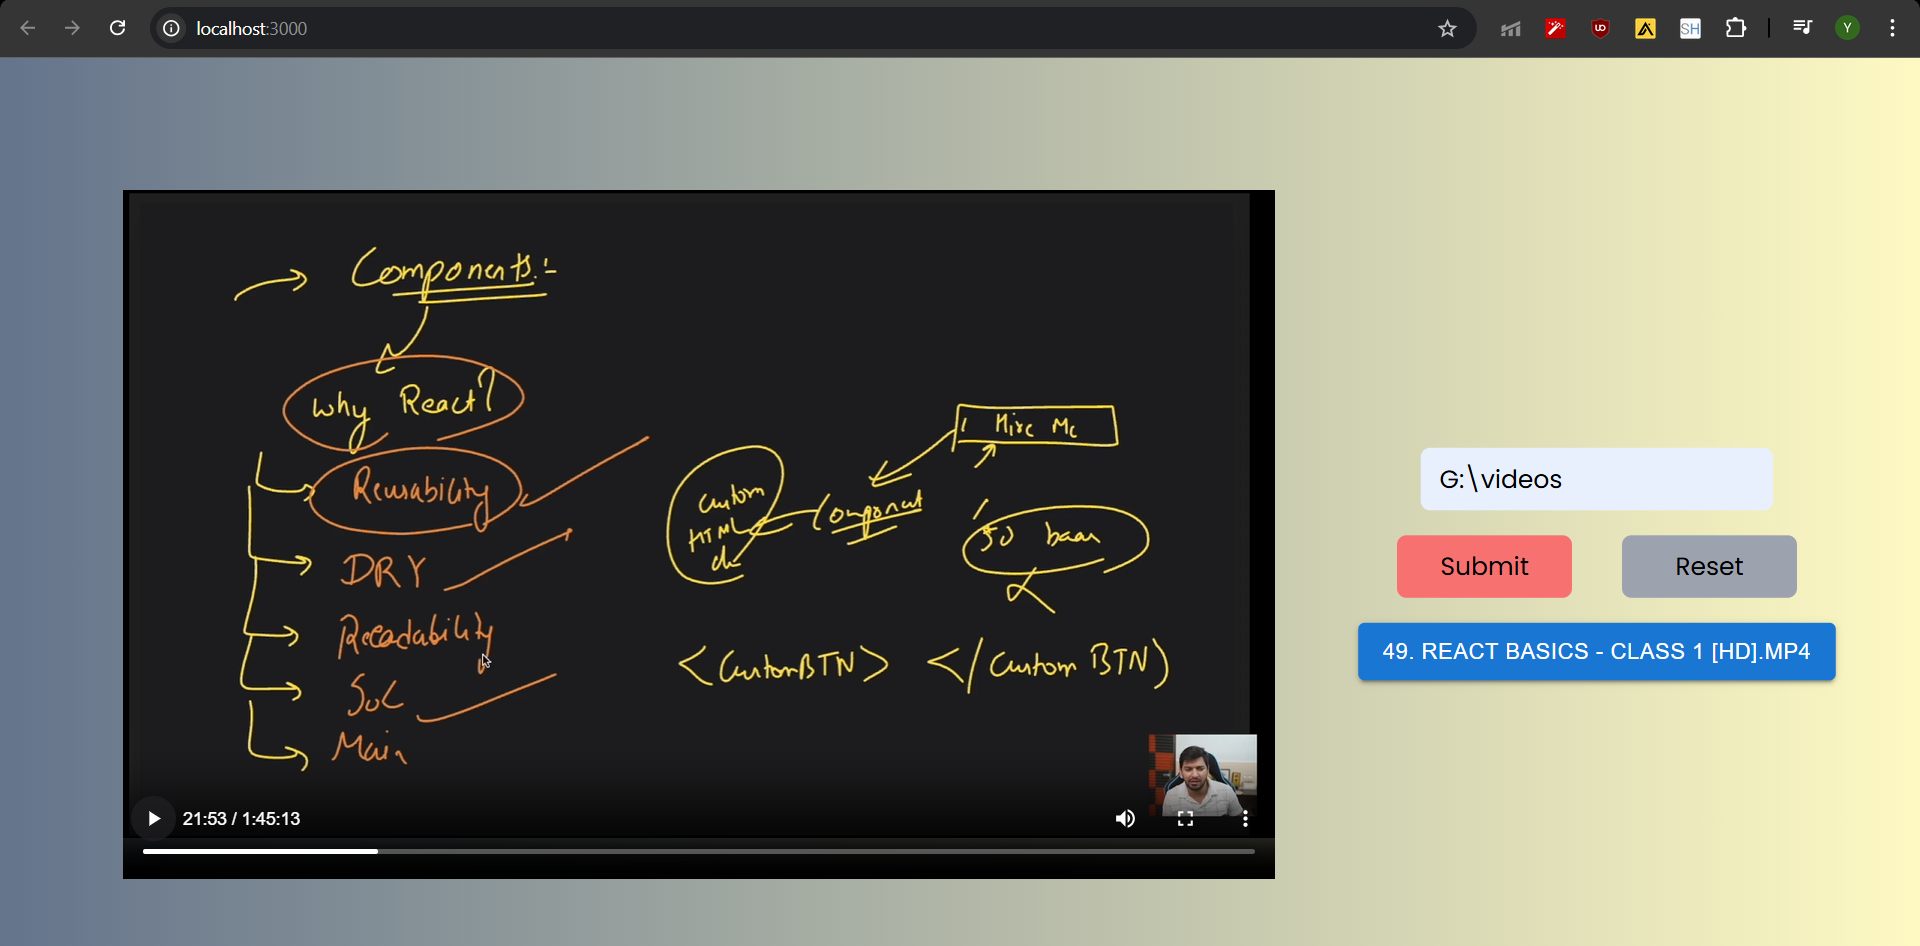 localhost:3000
Components :-
Why React?
Reusability
DRY
Readability
SoC
Main
Hire Me
Component
custom
HTML
50 baar
<CustomBTN> </Custom BTN>
21:53 / 1:45:13
G:\videos
Submit
Reset
49. REACT BASICS - CLASS 1 [HD].MP4
SH
Y